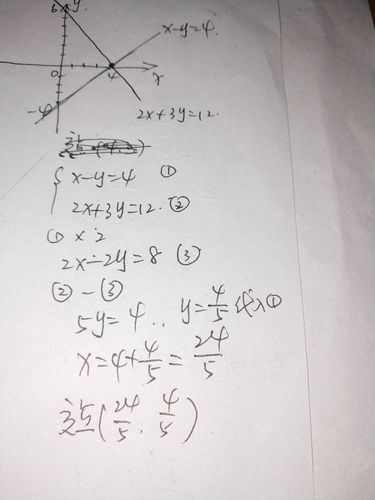 6 y
x-y=4
0 4 x
-4
2x+3y=12.
x-y=4 ①
2x+3y=12. ②
①×2
2x-2y=8 ③
②-③
5y=4 .. y=4/5 代入①
x=4+4/5=24/5
交点(24/5, 4/5)